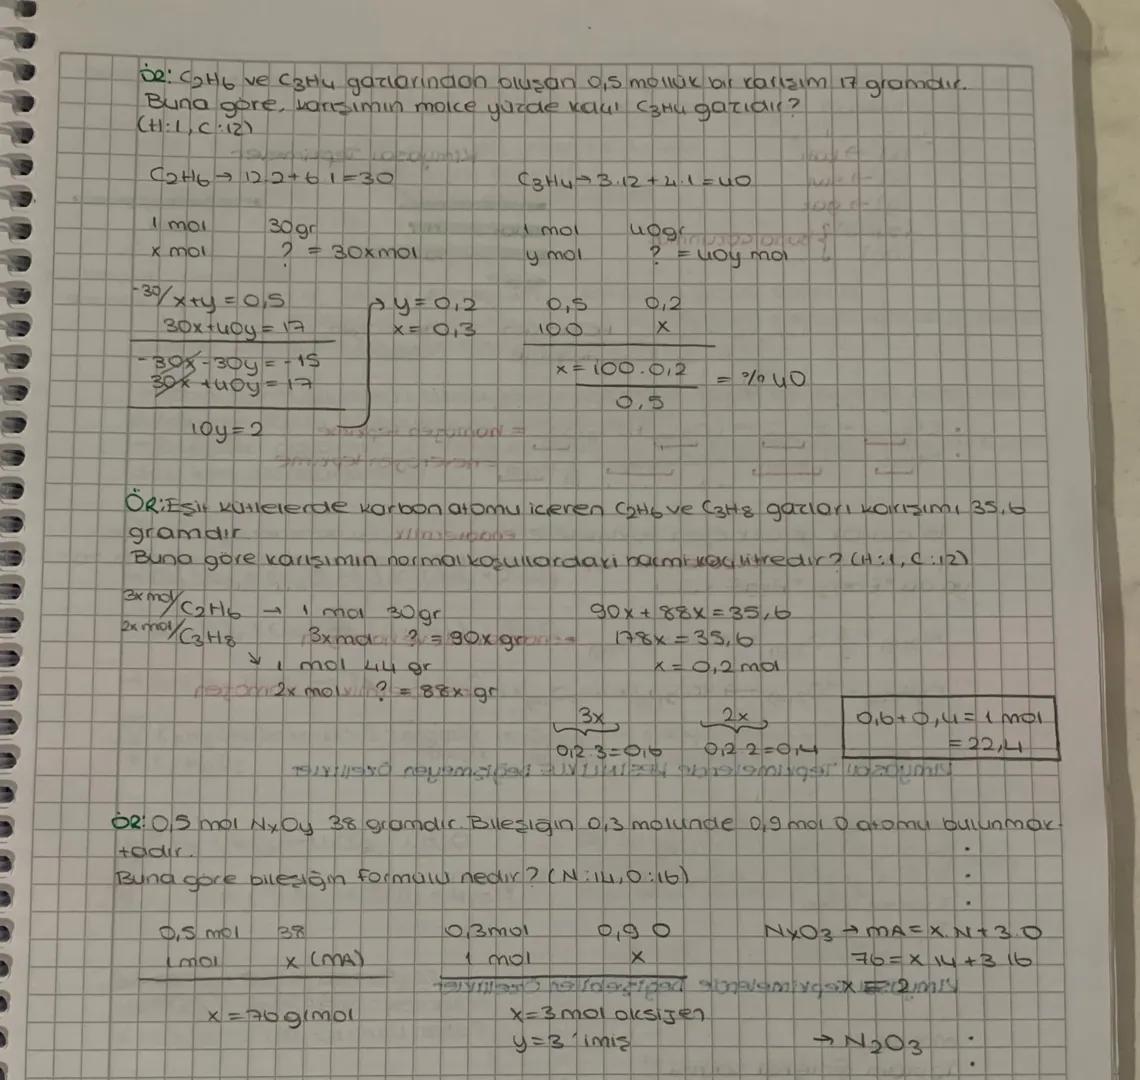 ÖR: C2H6 ve C3H4 gazlarından oluşan 0,5 mollük bir karışım 17 gramdır.
Buna göre, karışımın molce yüzde kaçı C3H4 gazıdır?
(H:1, C:12)
C2H6 → 12.2+6.1=30
C3H4 → 3.12+4.1=40
1 mol 30gr
x mol ? = 30xmol
1 mol 40gr
y mol ? = 40y mol
-30/ x+y = 0,5
30x+40y = 17
-30x-30y = -15
30x+40y = 17
10y=2
y= 0,2
x= 0,3
0,5 0,2
100 x
x = 100.0,2
0,5
= %40
ÖR: Eşit kütlelerde karbon atomu içeren C2H6 ve C3H8 gazları karışımı 35,6
gramdır
Buna göre karışımın normal koşullardaki hacmi kaç litredir? (H:1, C:12)
3x mol/ C2H6 → 1 mol 30gr
2x mol/ C3H8 3x mol ? = 90x gr
↘ 1 mol 44 gr
2x mol ? = 88x gr
90x + 88x = 35,6
178x = 35,6
x = 0,2 mol
3x 2x
0,2.3=0,6 0,2.2=0,4
0,6+0,4=1 mol
= 22,4
ÖR: 0,5 mol NxOy 38 gramdır. Bileşiğin 0,3 molünde 0,9 mol O atomu bulunmak
tadır.
Buna göre bileşiğin formülü nedir? (N:14, O:16)
0,5 mol 38
1 mol x (MA)
x=76g/mol
0,3mol 0,9 O
1 mol x
x=3 mol oksijen
y=3 'imiş
NxO3 → MA= x.N+3.O
76= x.14+3.16
x = 2
→ N2O3